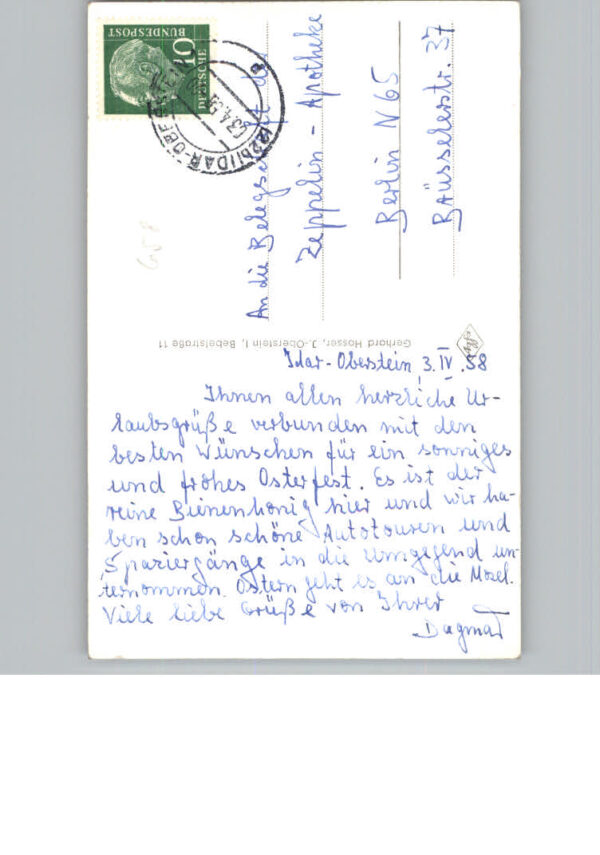 Idar-Oberstein, 3. IV. 58
Ihnen allen herzliche Ur-
laubsgrüße verbunden mit den
besten Wünschen für ein sonniges
und frohes Osterfest. Es ist der
reine Bienenhonig hier und wir ha-
ben schon schöne Autotouren und
Spaziergänge in die Umgegend un-
ternommen. Ostern geht es an die Mosel.
Viele liebe Grüße von Ihrer
Dagmar
An die Belegschaft der
Zeppelin - Apotheke
Berlin N 65
Brüsselerstr. 37
Gerhard Hosser, J.-Oberstein I, Bebelstraße 11
DEUTSCHE
BUNDESPOST
10